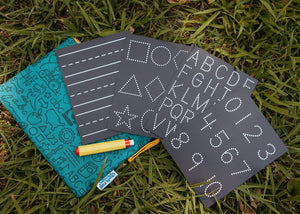 ABCDE
FGHIJ
KLM
PQR
VW
1 2 3
4 5 6
7 8 9
10